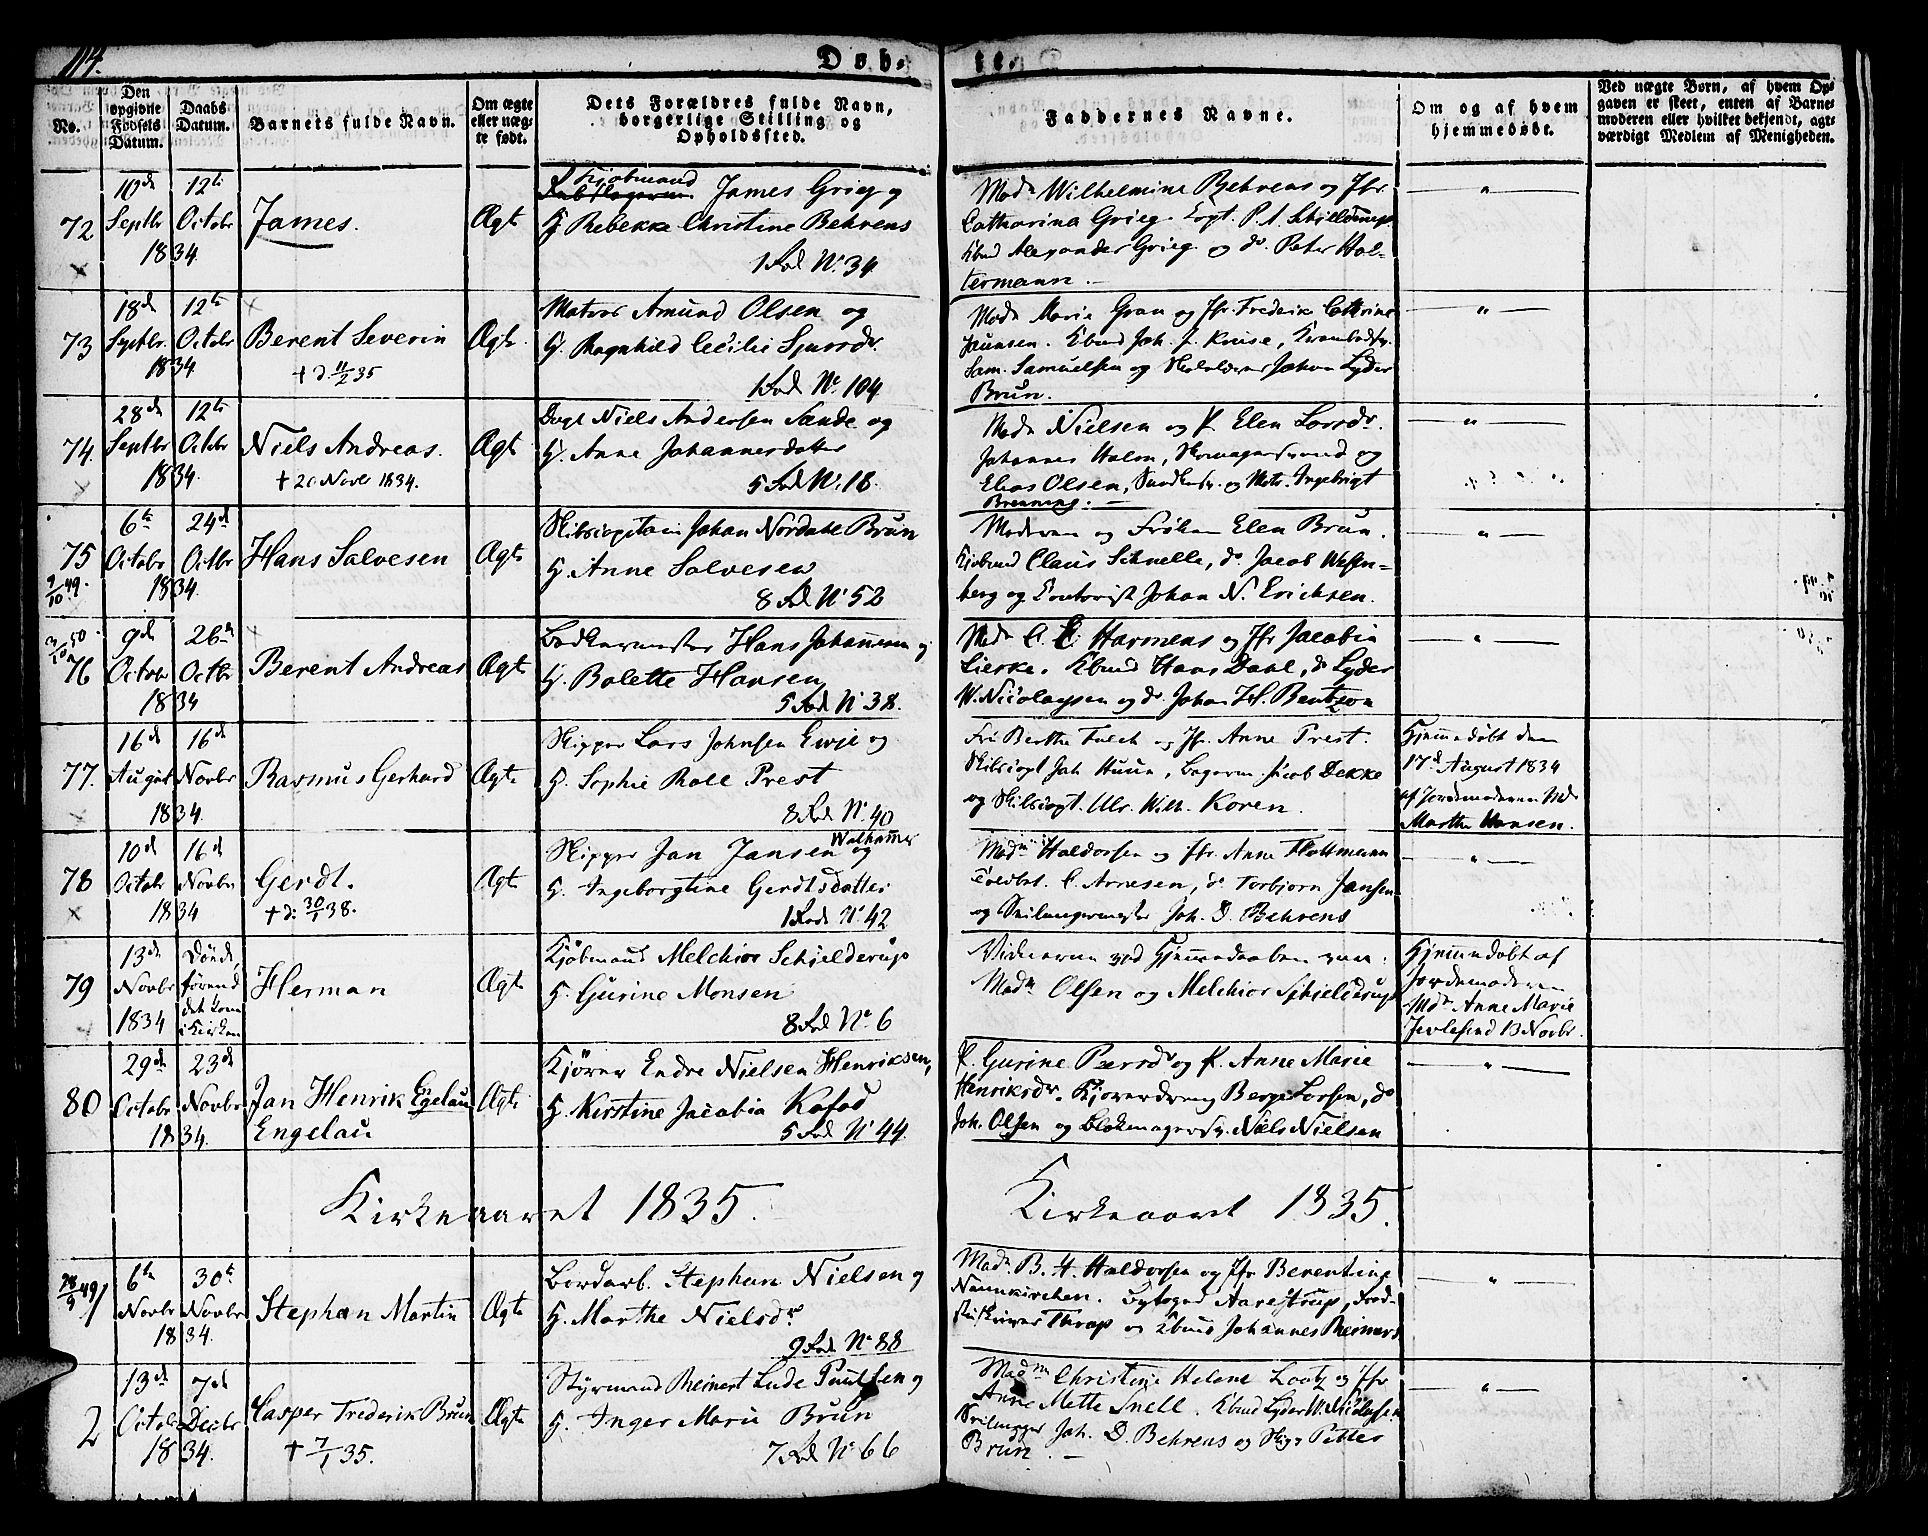 114.
Døb-
te.
No.
Den opgivne Fødsels Datum.
Daabs Datum.
Barnets fulde Navn.
Om ægte eller uægte født.
Dets Forældres fulde Navn, borgerlige Stilling og Opholdssted.
Faddernes Navne.
Om og af hvem hjemmedøbt.
Ved uægte Børn, af hvem Opgaven er skeet, enten af Barnemoderen eller hvilket bekjendt, agtværdigt Medlem af Menigheden.
72
10de Septbr 1834
12te Octobr
James.
Ægte
Kjøbmand James Grieg og
H. Rebekke Christine Behrens
1 Rod No 34
Mad. Wilhelmine Behrens og Jfr
Catharina Grieg. P. A. Schilderup
Alexander Grieg og do Peter Hol-
termann.
73
18de Septbr. 1834
12te Octobr
Berent Severin
+ d. 11/2 35
Ægte
Matros Amund Olsen og
H. Ragnhild Cecilie Sjursdr.
1 Rod No 104
Mad. Marie Gran og Jfr. Frederik Cathrine
Jaunsen. Kbmd Joh. J. Kruse,
Sam. Samuelsen og Johan Lyder
Brun.
74.
28de Septbr 1834.
12te Octbr
Niels Andreas.
+ 20 Novbr 1834.
Ægte
Dagl Niels Andersen Sande og
H. Anne Johannesdatter
5 Rod No. 18.
Mad. Nielsen og P. Elen Larsdr.
Johannes Holm, Skomagersvend og
Elias Olsen, og Matr. Ingebrigt
75
9/10 49.
6te Octobr 1834.
24de Octbr
Hans Salvesen
Ægte
Skibscapitain Johan Nordahl Brun
H. Anne Salvesen
8 Rod No 52
Moderen og Frøken Elen Brun.
Kjøbmd Claus Schnelle, do Jacob Westen-
berg og Contorist Johan N. Erichsen.
76
9de Octobr 1834
26de Octbr
Berent Andreas
Ægte
Bødkermester Hans Johannesen og
H. Bolette Hansen
5 Rod No 38.
Mad. C. E. Harmens og Jfr Jacobia
Lierke. Kbmd Hans Dahl, do Lyder
W. Nicolaysen og do Johan H. Bentzon
77.
16de August 1834.
16de Novbr
Rasmus Gerhard
Ægte
Skipper Lars Johnsen Ewje og
H. Sophie Roll Prest
8 Rod No. 40
Fru Berthe Falch og Jfr. Anne Prest.
Skibscapt Joh Huun, Jacob Dekke
og Skibscapt. Ulr. Wilh. Koren.
Hjemmedøbt den
17de August 1834
af Jordemoderen Md.
Marthe Hansen.
78
10de Octobr 1834
16de Novbr
Gerdt.
+ d: 30/1 38.
Ægte
Skipper Jan Jansen Walhammer og
H. Ingeborgtine Gerdtsdatter
1 Rode No. 42
Madm Haldorsen og Jfr. Anne Flottmann
C. Arnesen, do Torbjørn Jansen
og Seilmagermester Joh. D. Behrens
79
13de Novbr 1834
Døde, førend det kom i Kirken
Herman
Ægte
Kjøbmand Melchior Schjelderup
H. Gurine Monsen
8 Rod No 6
Vidnerne ved Hjemmedaaben var:
Madm Olsen og Melchior Schjelderup
Hjemmedøbt af
Jordemoderen
Mdm Anne Marie
13 Novbr.
80
29de Octobr 1834.
23de Novbr
Jan Henrik Egelau
Engelau
Ægte
Kjører Endre Nielsen Henriksen,
H. Kirstine Jacobia Kofod
5 Rod No 44.
P. Gurine Persdr og P. Anne Marie
Henriksdr. Kjøredreng Berge Larsen, do
Joh. Olsen og Blokmagersv. Niels Nielsen
Kirkeaaret 1835.
Kirkeaaret 1835.
1
6te Novbr 1834.
30te Novbr
Stephan Martin
Ægte
Bordarb. Stephan Nielsen og
H. Marthe Nielsdr
9 Rod No 88
Madm. B. H. Haldorsen og Jfr Berentine
Neunkirchen. Byfoged Aarestrup,
Thrap og Kbmd Johannes Reiners
2
13de Octobr 1834.
7de Decbr
Casper Frederik Brun
+ 7/1 35.
Ægte
Styrmand Reinert Lude Paulsen og
H. Inger Marie Brun
7 Rod No 66
Madm Christine Helene Lootz og Jfr
Anne Mette Snell. Kbmd Lyder W. Nicolaysen
Joh. D. Behrens og Skipr Petter
Brun.